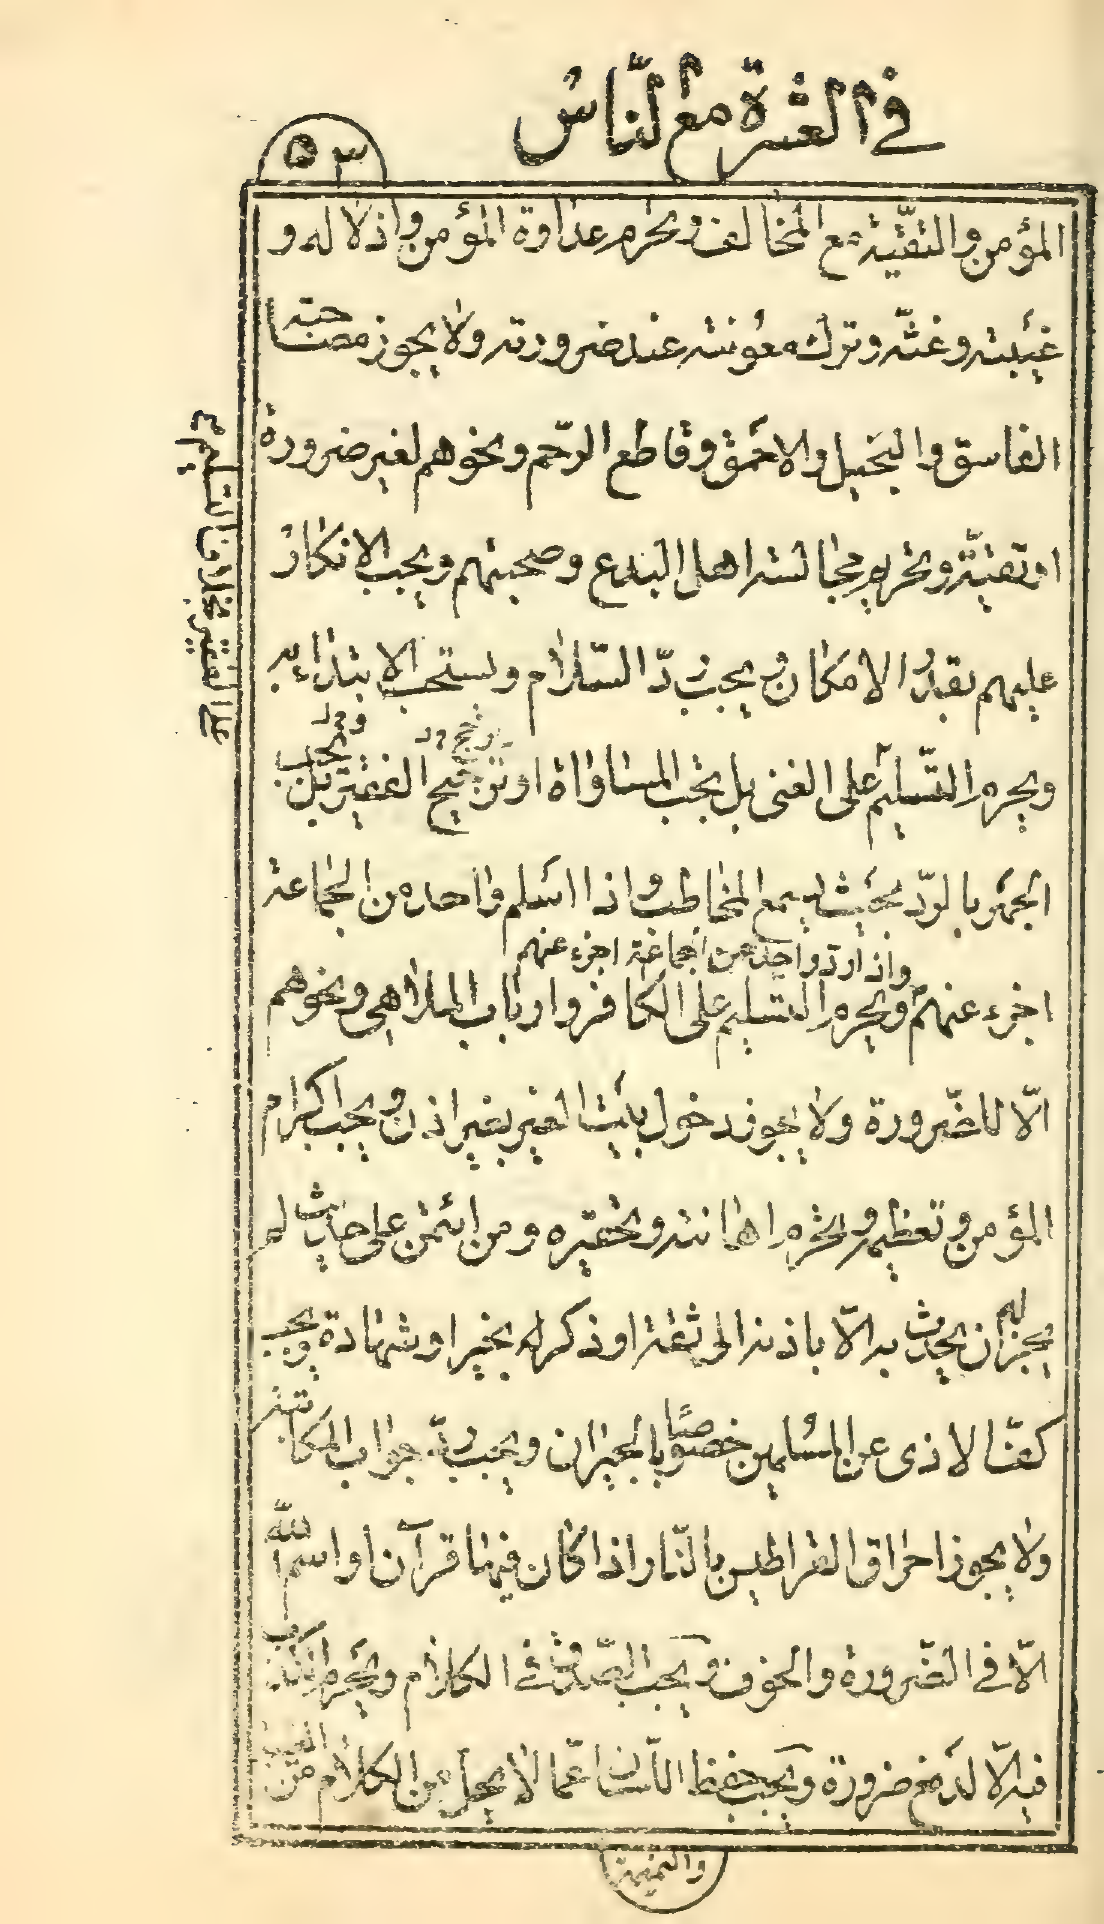 في العشرة مع الناس
٥٣
المؤمن والتقيّة مع المخالف ويحرم عداوة المؤمن واذلاله و
غيبته وغشّه وترك معونته عند ضرورته ولا يجوز مصاحبة
الفاسق والبخيل والاحمق وقاطع الرّحم ونحوهم لغير ضرورة
او تقيّة ويحرم مجالسة اهل البدع وصحبتهم ويجب الانكار
عليهم بقدر الامكان ويجب ردّ السّلام ويستحب الابتداء به
ويحرم التّسليم على الغنى بل يجب المساواة او ترجيح الفقير بل يجب
الجهر بالردّ بحيث يسمع المخاطب واذا سلم واحد من الجماعة
واذا رد واحد من الجماعة اجزء عنهم
اجزء عنهم ويحرم التسليم على الكافر وارباب الملاهى ونحوهم
الّا لضّرورة ولا يجوز دخول بيت الغير بغير اذن ويجب اكرام
المؤمن وتعظيمه ويحرم اهانته وتحقيره ومن ائتمن على حديث لم
يجز له ان يحدث به الّا باذنه الى ثقة او ذكر له بخير او شهادة ويجب
كفّ الاذى عن المسلمين خصوصًا بالجيران ويجب ردّ جواب المكاتبة
ولا يجوز احراق القراطيس بالنّار اذا كان فيها قرآن او اسم الله
الّا في الضّرورة والخوف ويجب الصّدق في الكلام ويحرم الكذب
فيه الّا لدفع ضرورة ويجب حفظ اللّسان عمّا لا يحل من الكلام من الغيبة
والنميمة
على الفقير بخلاف التسليم